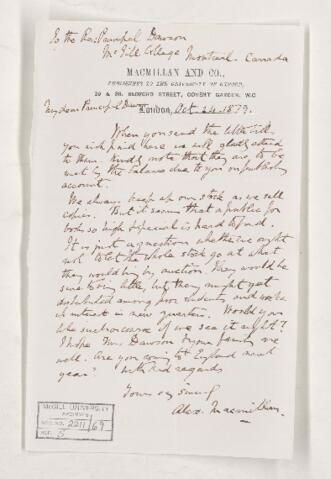 To the Rev. Principal Dawson
McGill College Montreal. Canada
MACMILLAN AND CO.,
PUBLISHERS TO THE UNIVERSITY OF OXFORD,
29 & 30, BEDFORD STREET, COVENT GARDEN, W.C.
My dear Principal Dawson
London, Oct. 24. 1879.
When you send the little bills
you wish paid here we will gladly attend
to them. Kindly note that they are to be
met by the balance due to you on publishing
account.
We always keep up our stock as we sell
copies. But it seems that a public for
books so high & special is hard to find.
It is just a question whether we ought
not to let the whole stock go at what
they would bring by auction. They would be
sure to bring little, but they might get
distributed among poor students, and work
interest in new quarters. Would you
like such a course if we see it right?
I hope Mrs. Dawson & your family are
well. Are you coming to England next
year? With kind regards
Yours very sincerely
Alex. Macmillan.
McGILL UNIVERSITY
ARCHIVES
ACC. NO. 2211/69
REF. 5